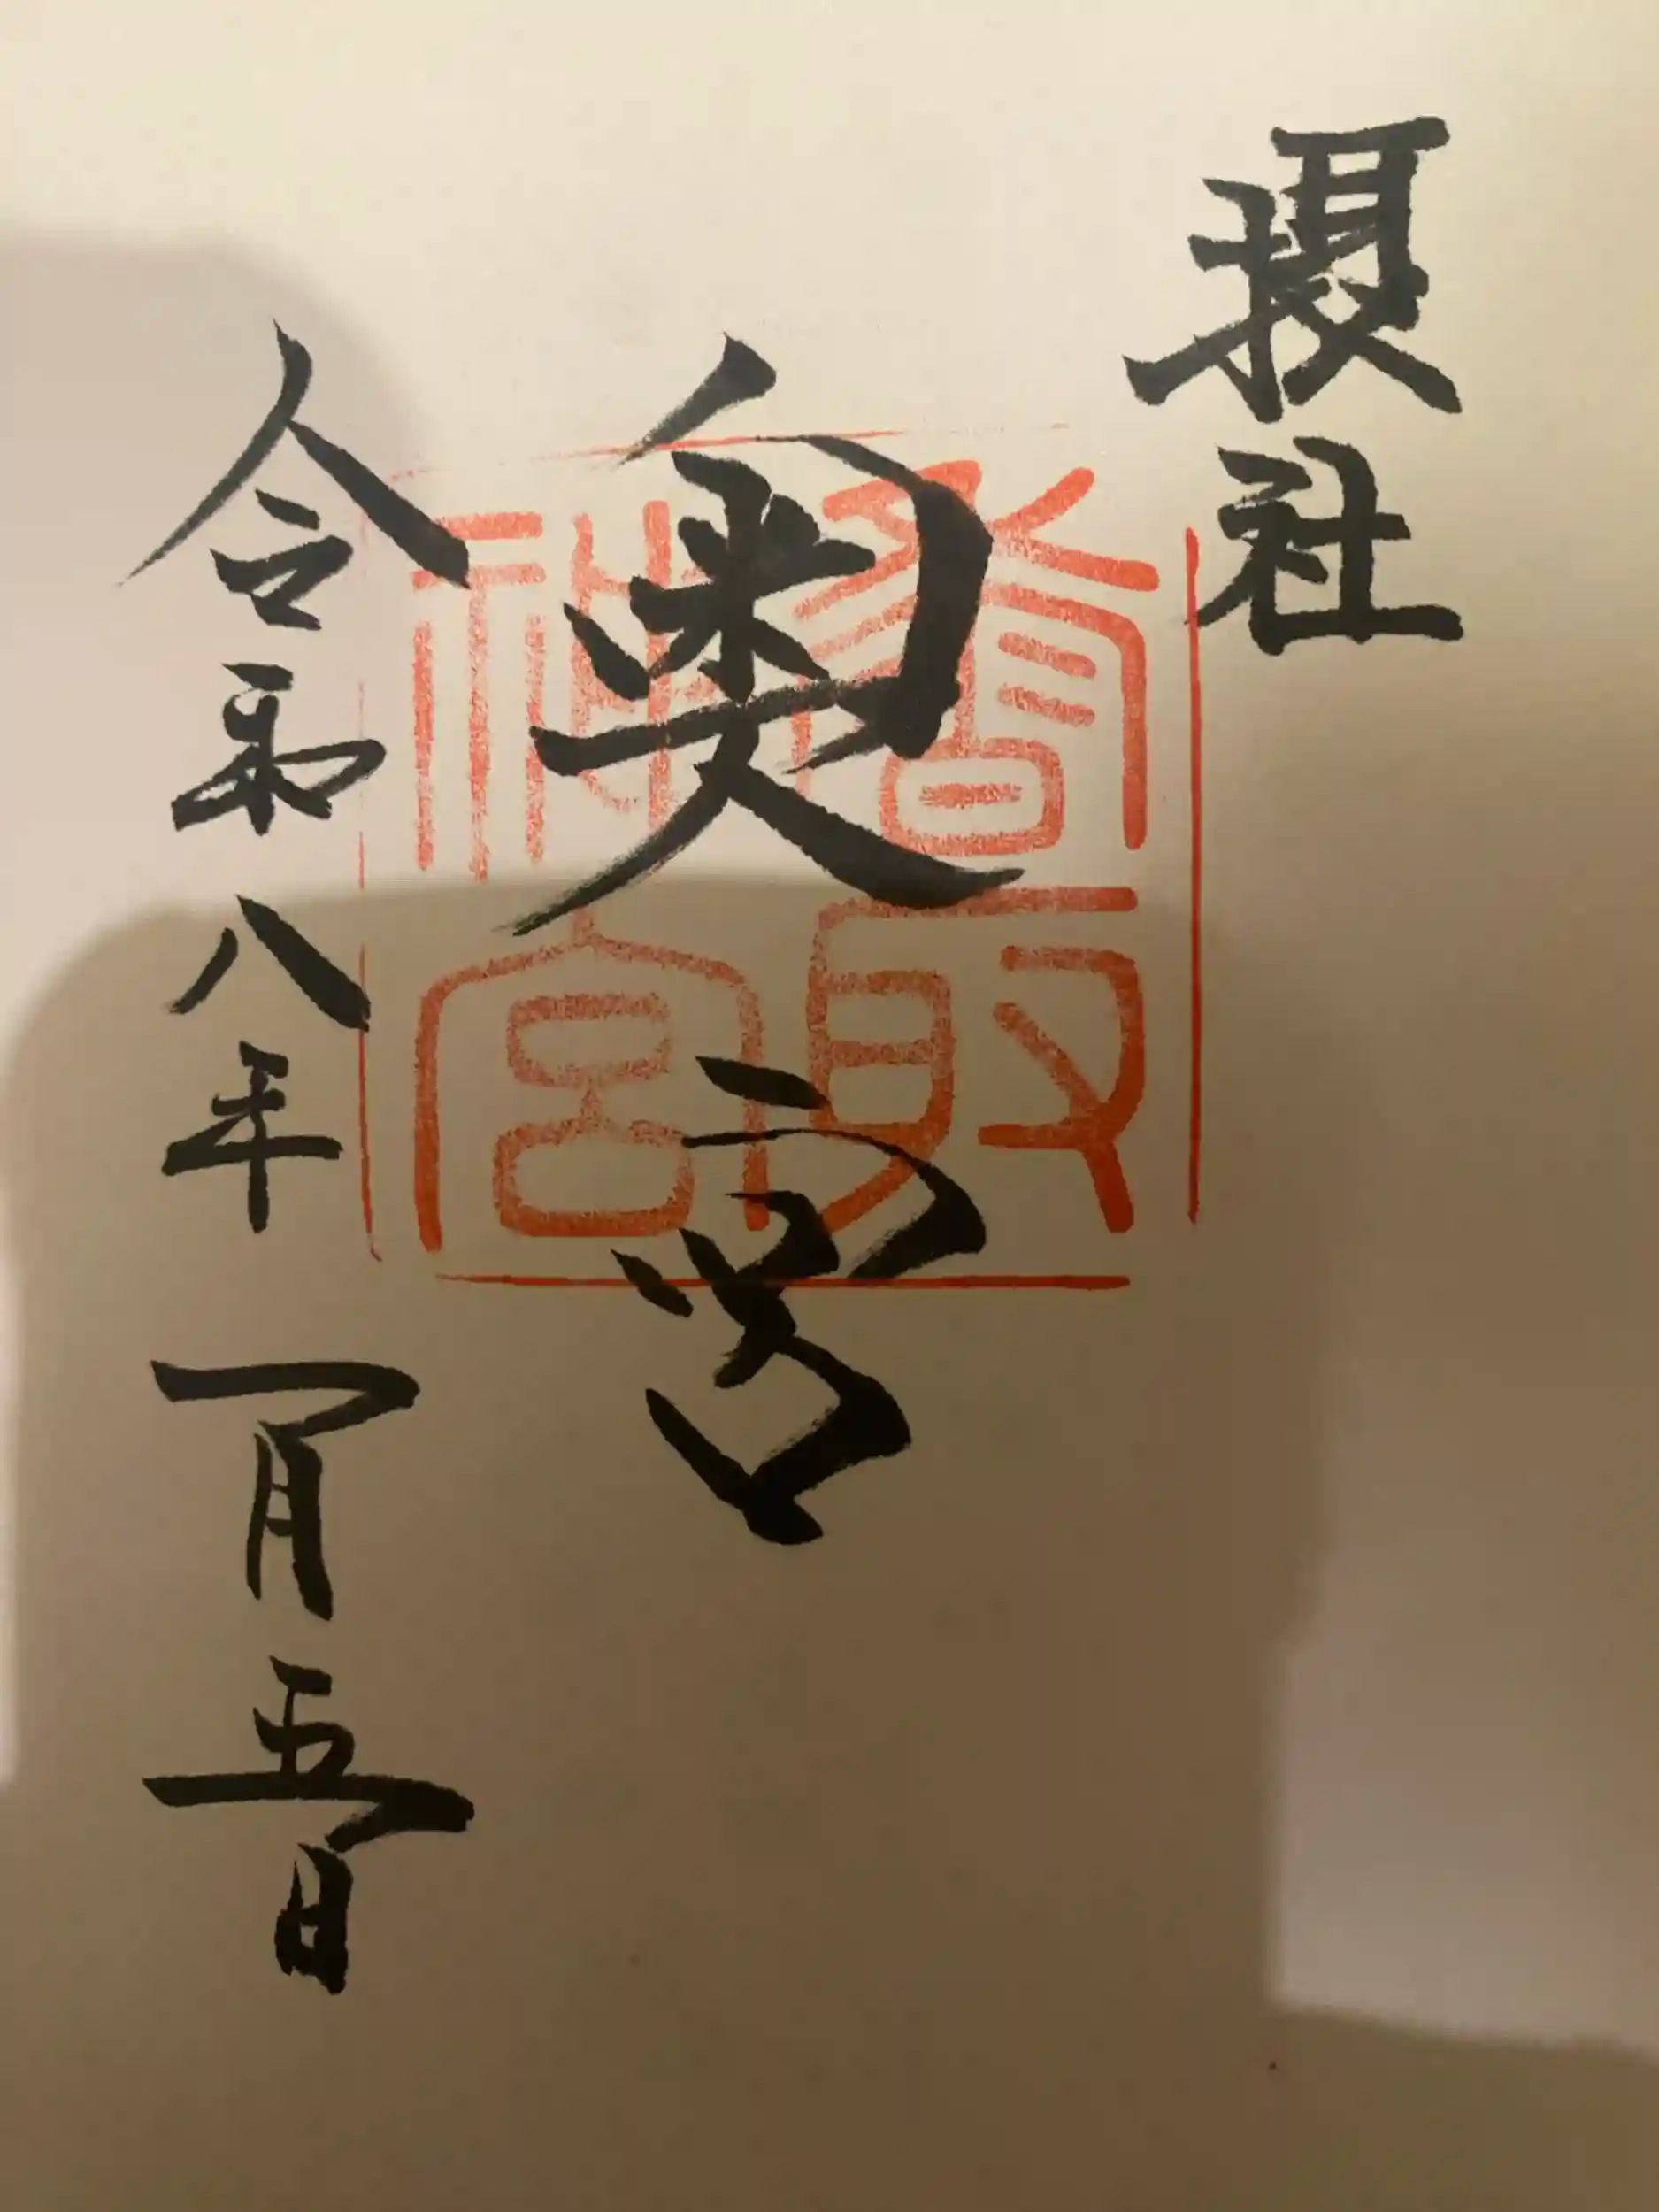 摂社
奥宮
香取
神宮
令和八年一月五日